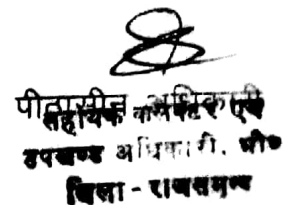 पीठासीन अधिकारी
सहायक कलक्टर एवं
उपखण्ड अधिकारी, भी०
जिला - राजसमन्द